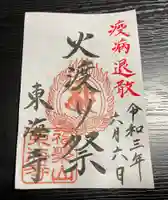 疫病退散
令和三年
六月六日
火渡り祭
東海寺